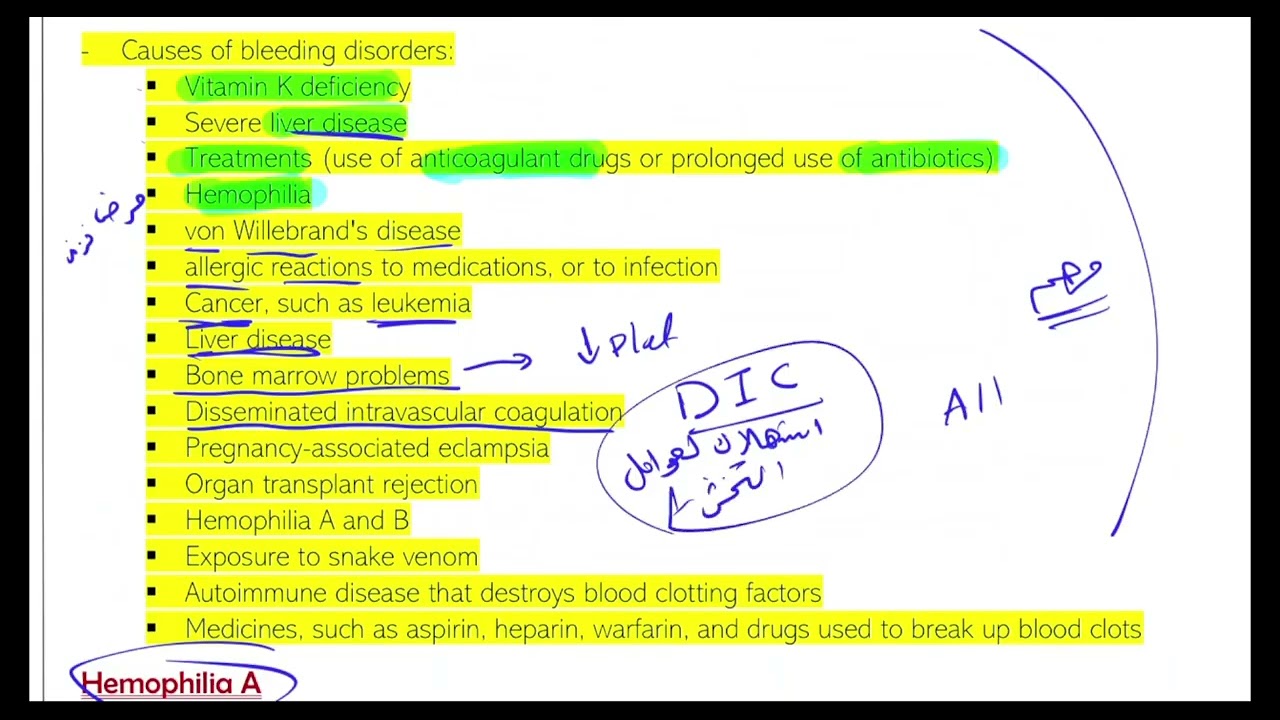 - Causes of bleeding disorders:
▪ Vitamin K deficiency
▪ Severe liver disease
▪ Treatments (use of anticoagulant drugs or prolonged use of antibiotics)
▪ Hemophilia
▪ von Willebrand's disease
▪ allergic reactions to medications, or to infection
▪ Cancer, such as leukemia
▪ Liver disease
▪ Bone marrow problems → ↓ Plat
▪ Disseminated intravascular coagulation
▪ Pregnancy-associated eclampsia
▪ Organ transplant rejection
▪ Hemophilia A and B
▪ Exposure to snake venom
▪ Autoimmune disease that destroys blood clotting factors
▪ Medicines, such as aspirin, heparin, warfarin, and drugs used to break up blood clots
Hemophilia A
DIC
استهلاك لعوامل
التخثر
All